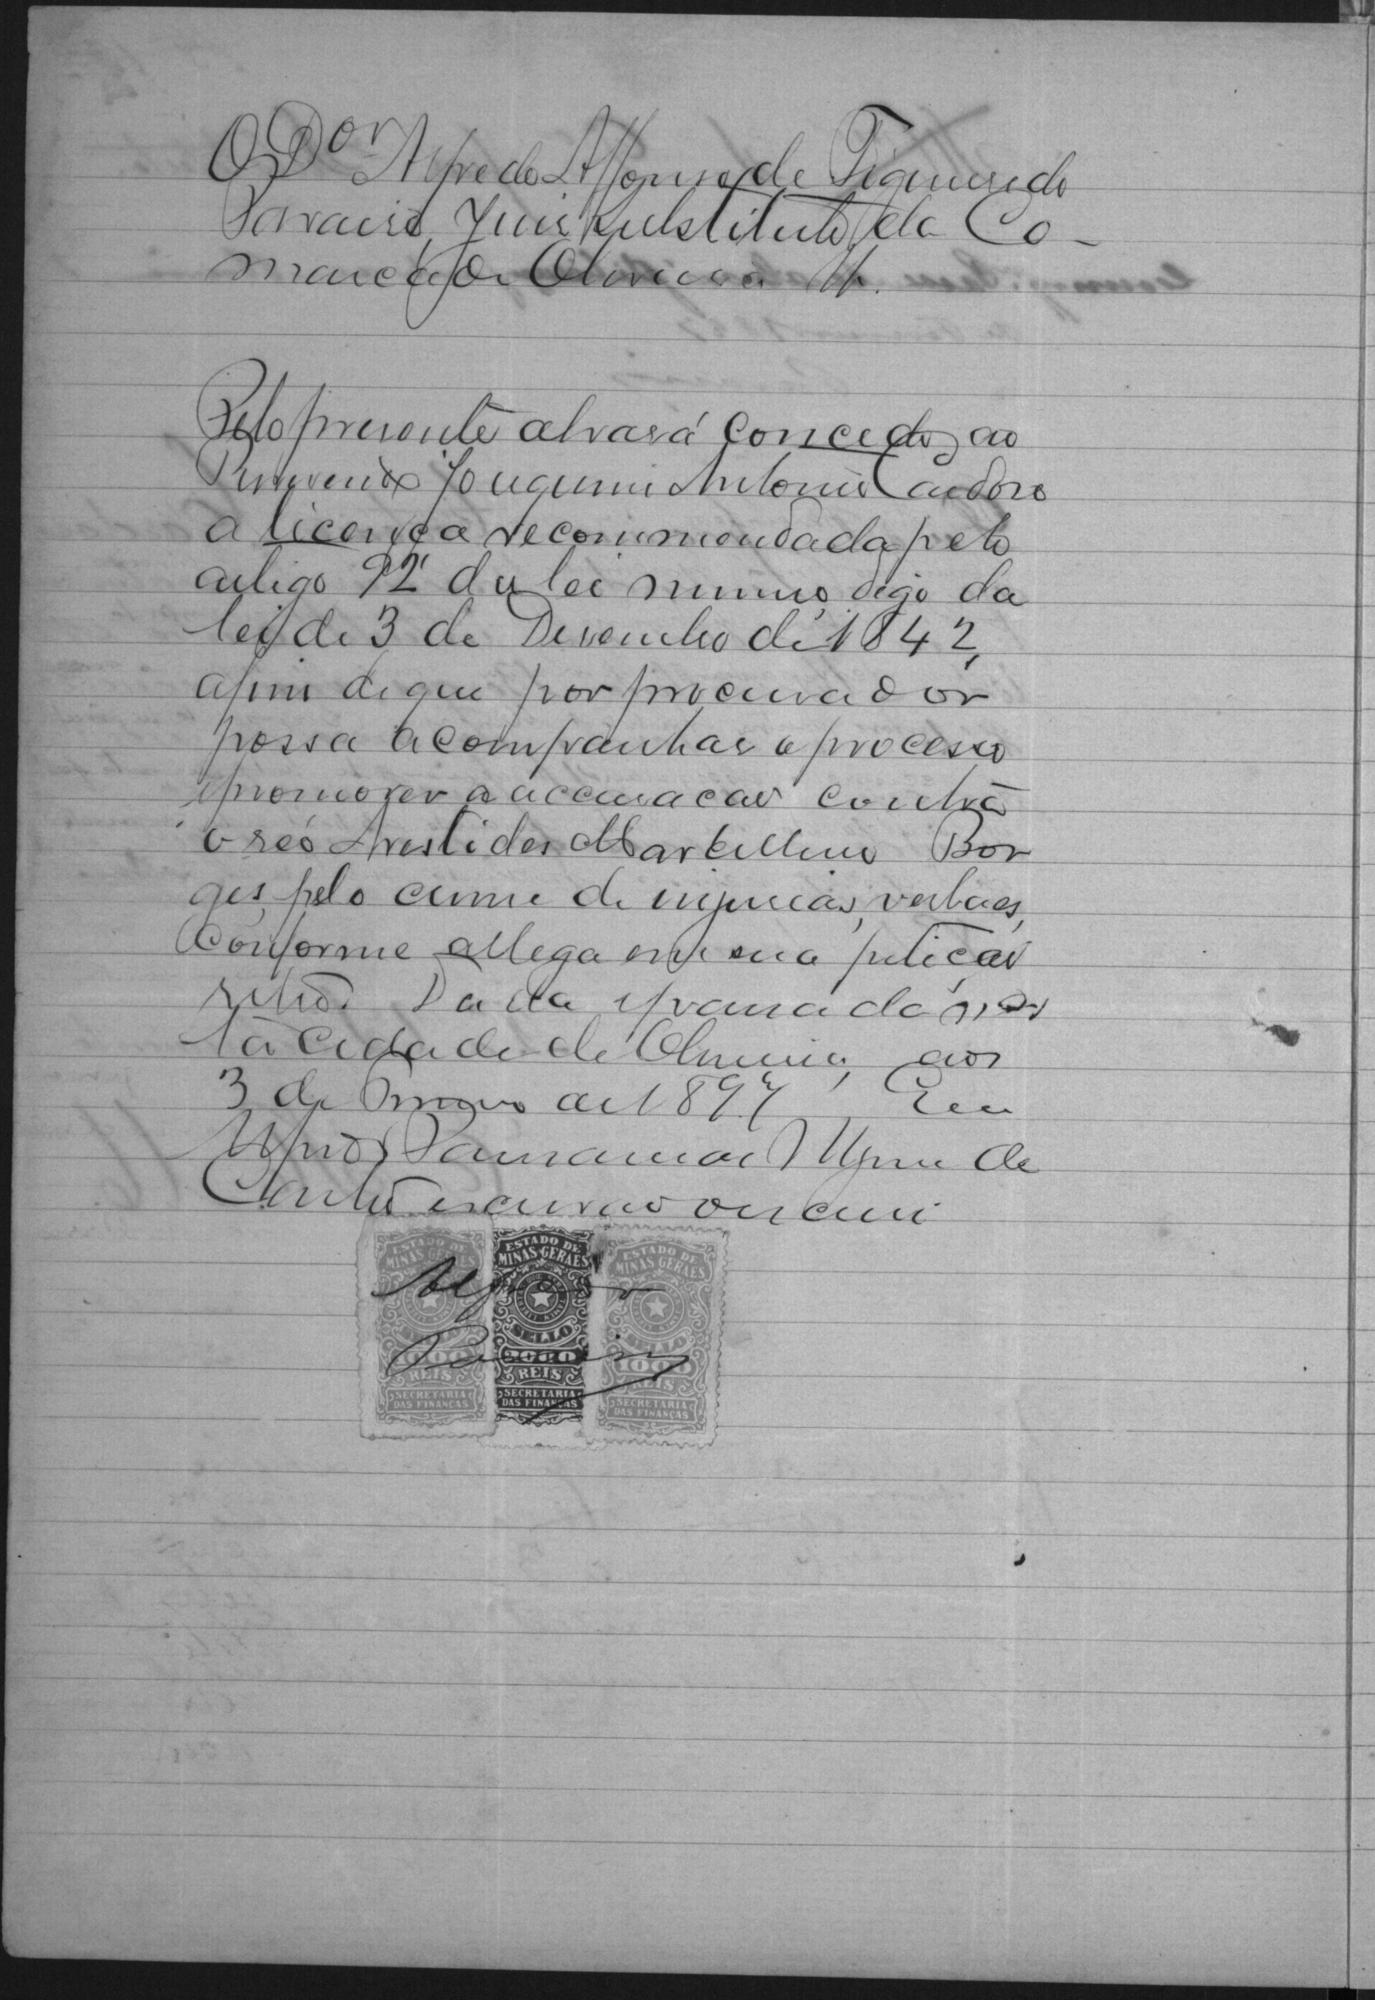 O Dor Alfredo Affonso de Figueiredo
Paraiso, Juis Substituto da Co-
marca de Oliveira
Pelo presente alvará concedo ao
Reverendo Joaquim Antonio Cardoso
a licença recommendada pelo
artigo 92 da lei numero, digo da
lei de 3 de Desembro de 1842,
afim de que por procurador
possa acompanhar o processo
e promover a accusacão contra
o réo Aristides Marcellino Bor
ges, pelo crime de injurias verbaes,
conforme allega em sua peticão
retro. Dada e passada nes
ta cidade de Oliveira, aos
3 de de 1897 Eu
de
Castro escrivão o escrevi
ESTADO DE MINAS GERAES SELLO 1000 REIS SECRETARIA DAS FINANÇAS
ESTADO DE MINAS GERAES SELLO 2000 REIS SECRETARIA DAS FINANÇAS
ESTADO DE MINAS GERAES SELLO 1000 REIS SECRETARIA DAS FINANÇAS
Alfredo
Paraiso